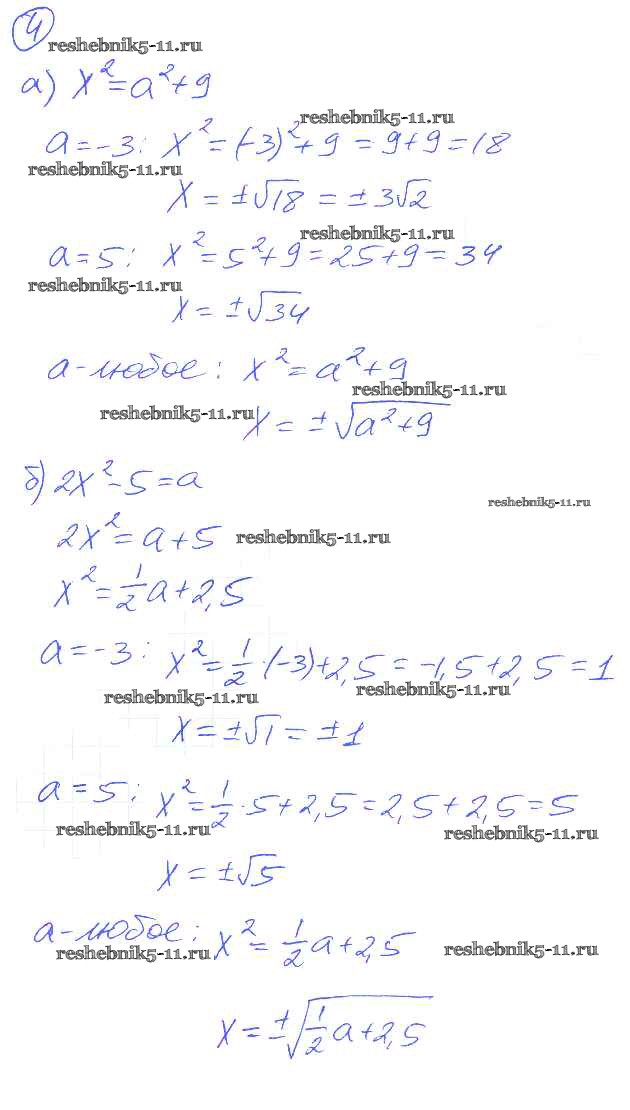 4
reshebnik5-11.ru
а) x² = a² + 9
reshebnik5-11.ru
a = -3 : x² = (-3)² + 9 = 9 + 9 = 18
reshebnik5-11.ru
x = ±√18 = ±3√2
reshebnik5-11.ru
a = 5 : x² = 5² + 9 = 25 + 9 = 34
reshebnik5-11.ru
x = ±√34
a - любое : x² = a² + 9
reshebnik5-11.ru
reshebnik5-11.ru x = ±√(a² + 9)
б) 2x² - 5 = a
reshebnik5-11.ru
2x² = a + 5 reshebnik5-11.ru
x² = 1/2 a + 2,5
a = -3 : x² = 1/2 · (-3) + 2,5 = -1,5 + 2,5 = 1
reshebnik5-11.ru reshebnik5-11.ru
x = ±√1 = ±1
a = 5 ; x² = 1/2 · 5 + 2,5 = 2,5 + 2,5 = 5
reshebnik5-11.ru reshebnik5-11.ru
x = ±√5
a - любое : x² = 1/2 a + 2,5
reshebnik5-11.ru reshebnik5-11.ru
x = ±√(1/2 a + 2,5)